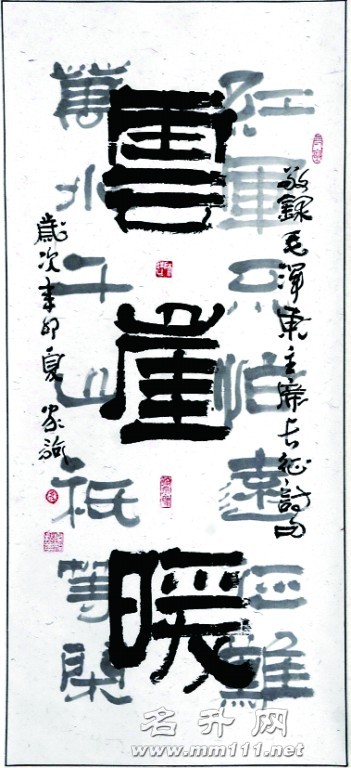 紅軍不怕遠征難
萬水千山祇等閑
雲崖暖
敬録毛澤東主席长征詩句
歲次辛卯夏
名升网
www.mm111.net